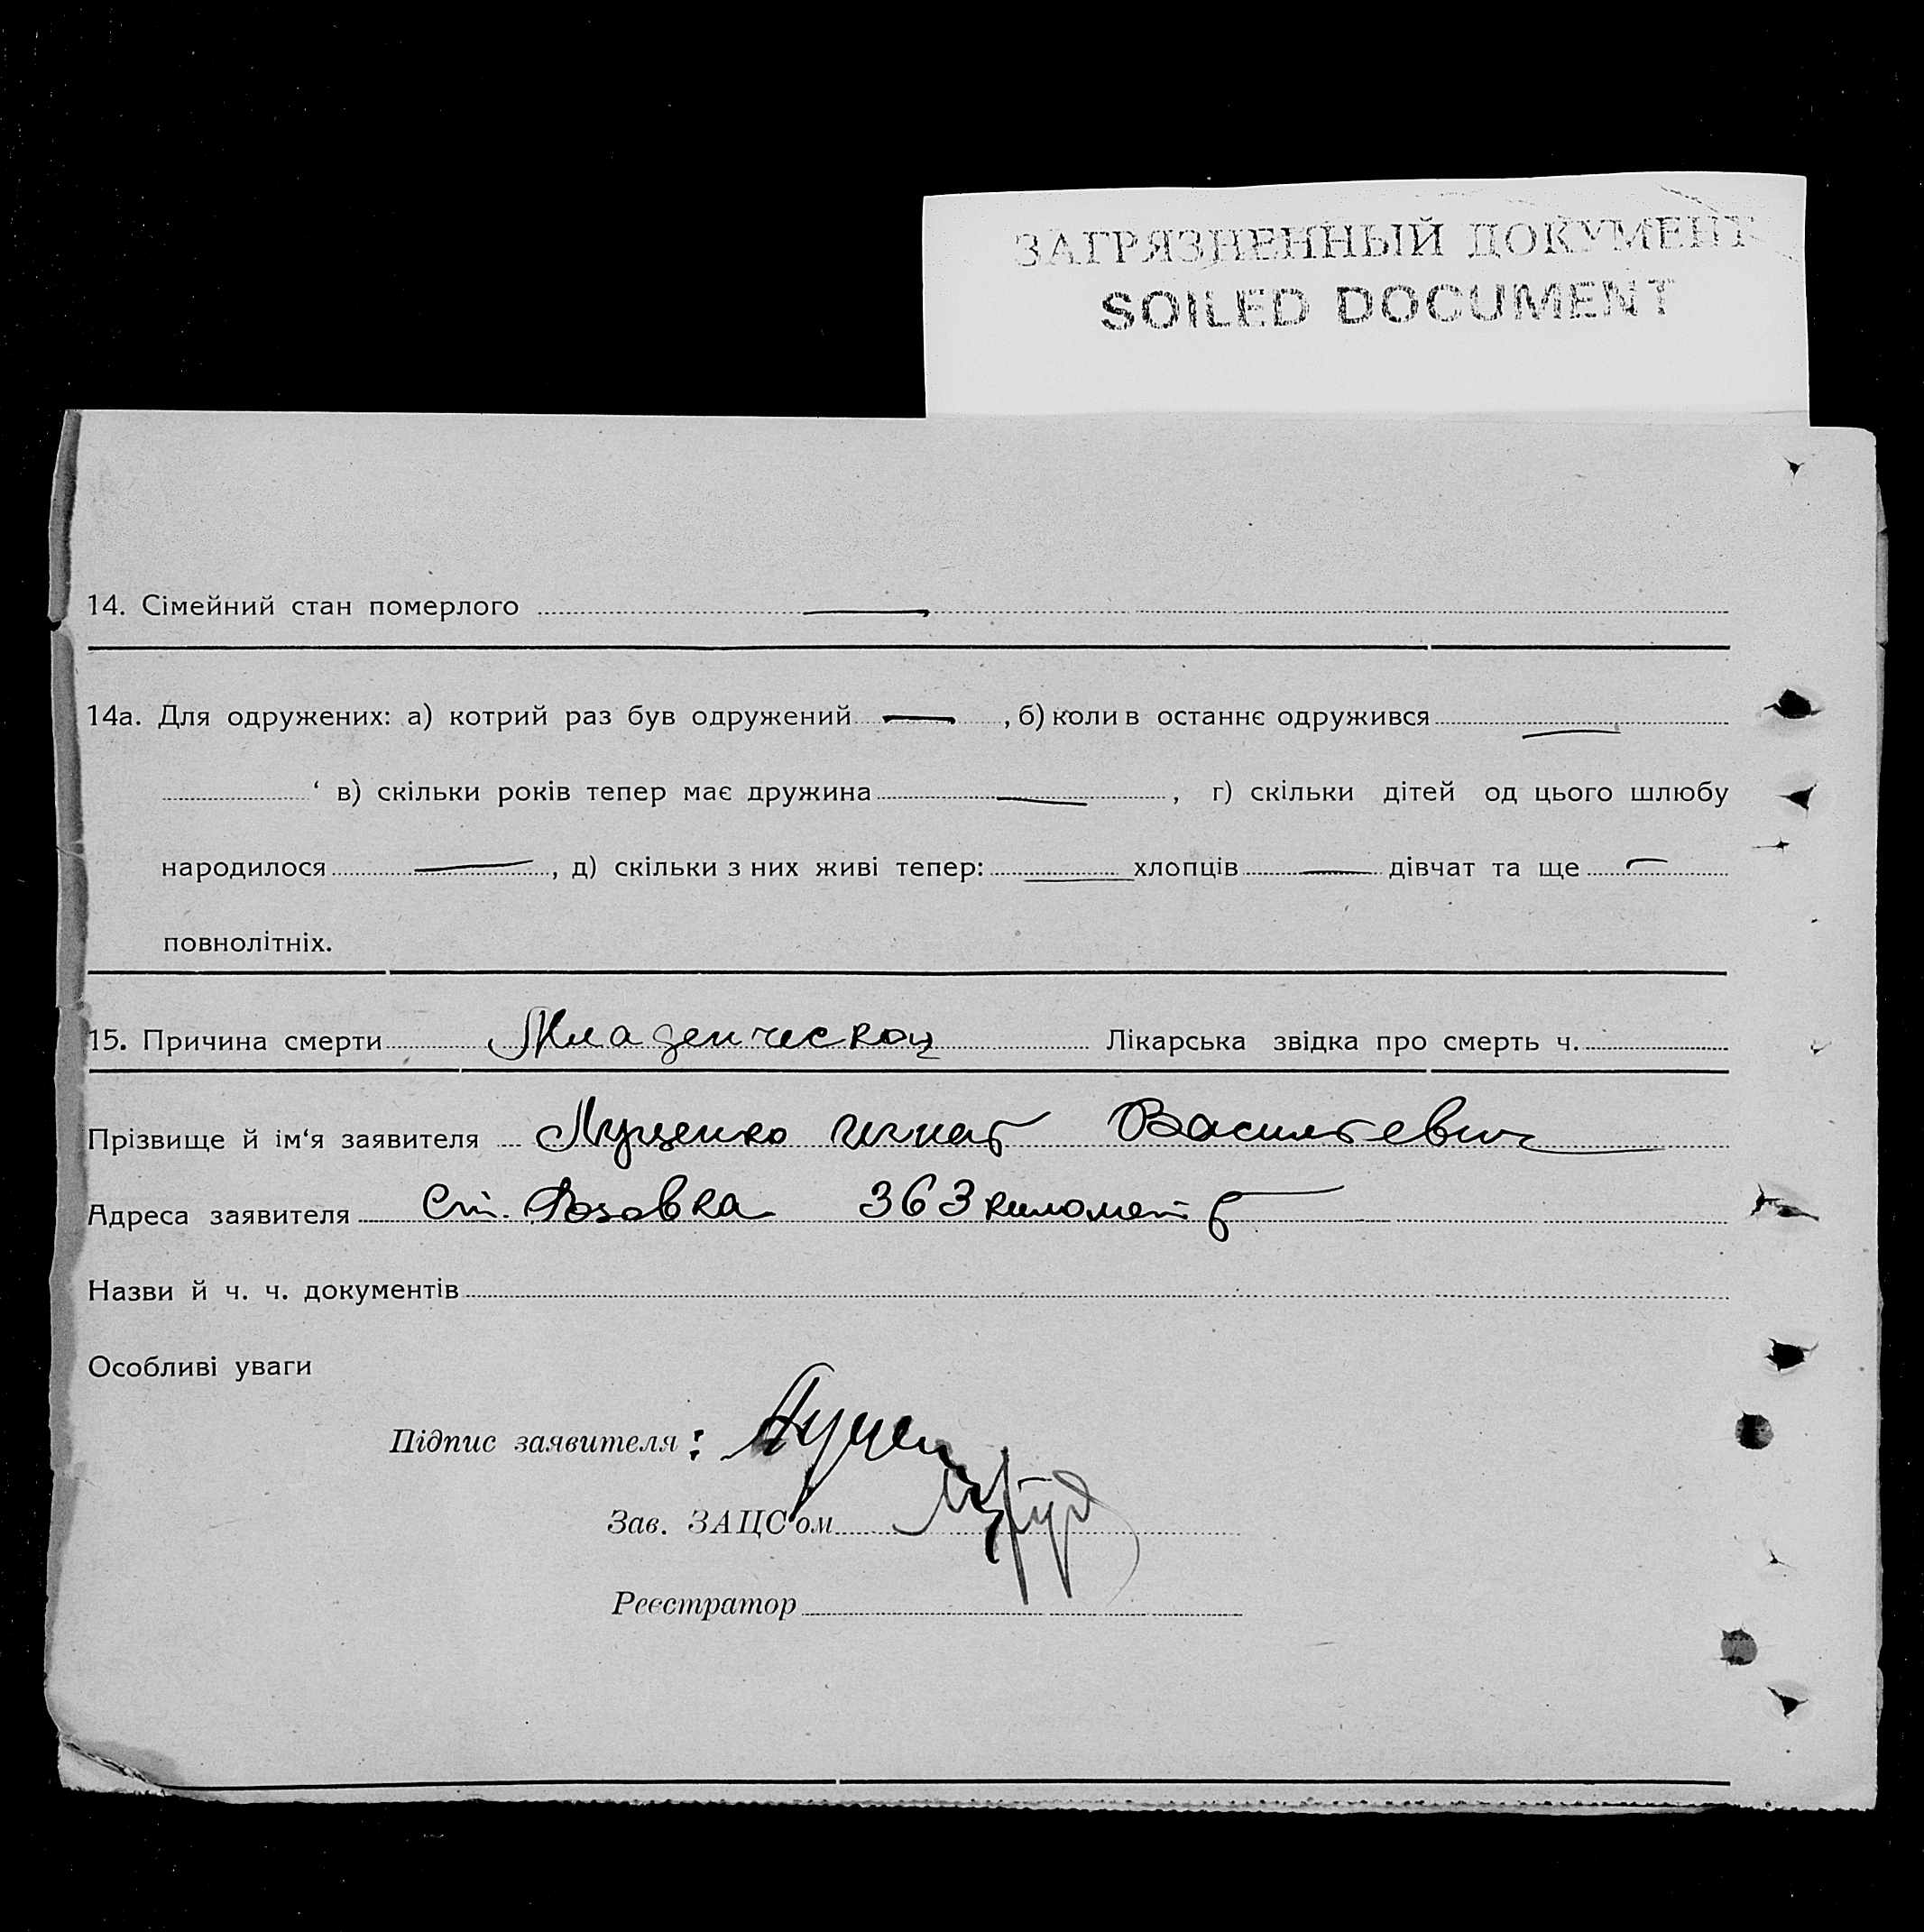 ЗАГРЯЗНЕННЫЙ ДОКУМЕНТ
SOILED DOCUMENT
14. Сімейний стан померлого —
14а. Для одружених: а) котрий раз був одружений — , б) коли в останнє одружився —
‘ в) скільки років тепер має дружина — , г) скільки дітей од цього шлюбу
народилося — , д) скільки з них живі тепер: — хлопців — дівчат та ще —
повнолітніх.
15. Причина смерти Младенческой Лікарська звідка про смерть ч.
Прізвище й ім‘я заявителя Луценко Игнат Васильевич
Адреса заявителя Ст. Розовка 363 километр
Назви й ч. ч. документів
Особливі уваги
Підпис заявителя: Луцен
Зав. ЗАЦС'ом
Реєстратор